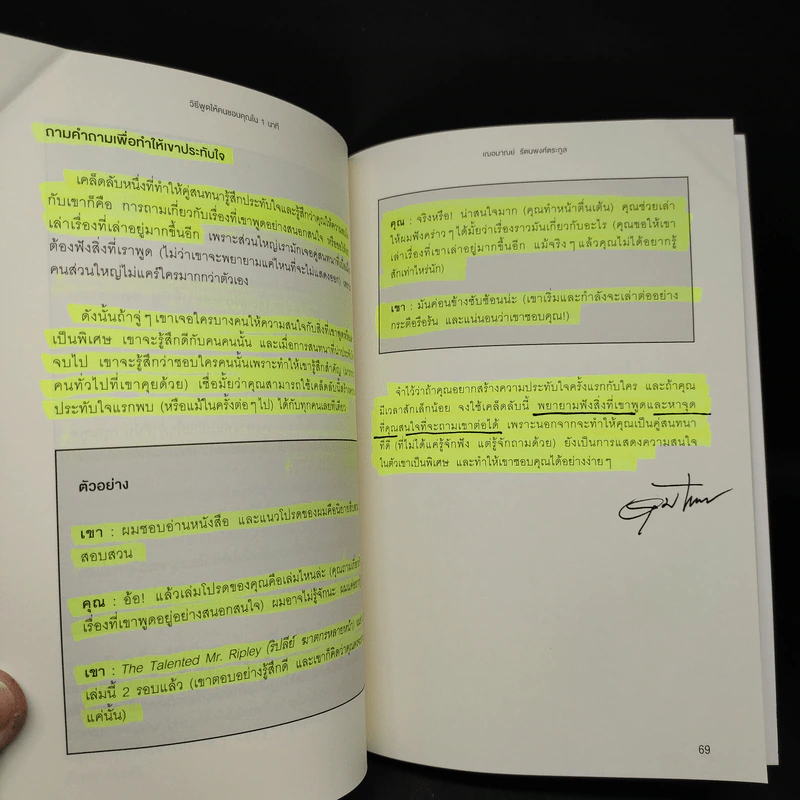 วิธีพูดให้คนชอบคุณใน 1 นาที
ถามคำถามเพื่อทำให้เขาประทับใจ
เคล็ดลับหนึ่งที่ทำให้คู่สนทนารู้สึกประทับใจและรู้สึกว่าคุณให้ความสนใจ
กับเขาก็คือ การถามเกี่ยวกับเรื่องที่เขาพูดอย่างสนอกสนใจ หรือขอให้เขา
เล่าเรื่องที่เล่าอยู่มากขึ้นอีก เพราะส่วนใหญ่เรามักเจอคู่สนทนาที่
ต้องฟังสิ่งที่เราพูด (ไม่ว่าเขาจะพยายามแค่ไหนที่จะไม่แสดงออก)
คนส่วนใหญ่ไม่แคร์ใครมากกว่าตัวเอง
ดังนั้นถ้าจู่ๆ เขาเจอใครบางคนให้ความสนใจกับสิ่งที่เขาพูด
เป็นพิเศษ เขาจะรู้สึกดีกับคนคนนั้น และเมื่อการสนทนาที่น่าประทับใจ
จบไป เขาจะรู้สึกว่าชอบใครคนนั้นเพราะทำให้เขารู้สึกสำคัญ
คนทั่วไปที่เขาคุยด้วย) เชื่อมั้ยว่าคุณสามารถใช้เคล็ดลับนี้สร้างความ
ประทับใจแรกพบ (หรือแม้ในครั้งต่อๆ ไป) ได้กับทุกคนเลยทีเดียว
ตัวอย่าง
เขา : ผมชอบอ่านหนังสือ และแนวโปรดของผมคือนิยายสืบสวน
สอบสวน
คุณ : อ้อ! แล้วเล่มโปรดของคุณคือเล่มไหนล่ะ (คุณถามเกี่ยวกับ
เรื่องที่เขาพูดอยู่อย่างสนอกสนใจ) ผมอาจไม่รู้จักนะ
เขา : The Talented Mr. Ripley (ริปลีย์ ฆาตกรหลายหน้า)
เล่มนี้ 2 รอบแล้ว (เขาตอบอย่างรู้สึกดี และเขาก็คิดว่าคุณ
แค่นั้น)
เฌอมาณย์ รัตนพงศ์ตระกูล
คุณ : จริงหรือ! น่าสนใจมาก (คุณทำหน้าตื่นเต้น) คุณช่วยเล่า
ให้ผมฟังคร่าวๆ ได้มั้ยว่าเรื่องราวมันเกี่ยวกับอะไร (คุณขอให้เขา
เล่าเรื่องที่เขาเล่าอยู่มากขึ้นอีก แม้จริงๆ แล้วคุณไม่ได้อยากรู้
สักเท่าไหร่นัก)
เขา : มันค่อนข้างซับซ้อนน่ะ (เขาเริ่มและกำลังจะเล่าต่ออย่าง
กระตือรือร้น และแน่นอนว่าเขาชอบคุณ!)
จำไว้ว่าถ้าคุณอยากสร้างความประทับใจครั้งแรกกับใคร และถ้าคุณ
มีเวลาสักเล็กน้อย จงใช้เคล็ดลับนี้ พยายามฟังสิ่งที่เขาพูดและหาจุด
ที่คุณสนใจที่จะถามเขาต่อได้ เพราะนอกจากจะทำให้คุณเป็นคู่สนทนา
ที่ดี (ที่ไม่ได้แค่รู้จักฟัง แต่รู้จักถามด้วย) ยังเป็นการแสดงความสนใจ
ในตัวเขาเป็นพิเศษ และทำให้เขาชอบคุณได้อย่างง่ายๆ
69